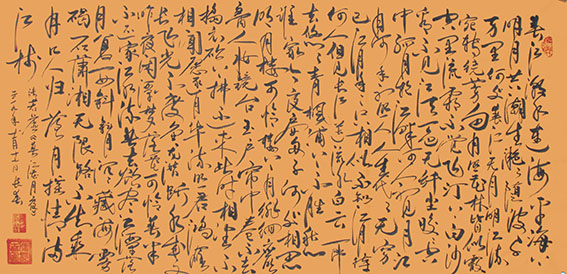 春江潮水连海平海上
明月共潮生滟滟随波千
万里何处春江无月明江流
宛转绕芳甸月照花林皆似霰
空里流霜不觉飞汀上白沙
看不见江天一色无纤尘皎皎空
中孤月轮江畔何人初见月江
月何年初照人人生代代无穷
已江月年年望相似不知江月待
何人但见长江送流水白云一片
去悠悠青枫浦上不胜愁
谁家今夜扁舟子何处相思
明月楼可怜楼上月徘徊应照离
人妆镜台玉户帘中卷不去
捣衣砧上拂还来此时相望不
相闻愿逐月华流照君鸿雁
长飞光不度鱼龙潜跃水成文
昨夜闲潭梦落花可怜春半
不还家江水流春去欲尽江潭落
月复西斜斜月沉沉藏海雾
碣石潇湘无限路不知乘
月几人归落月摇情满
江树
张若虚春江花月夜